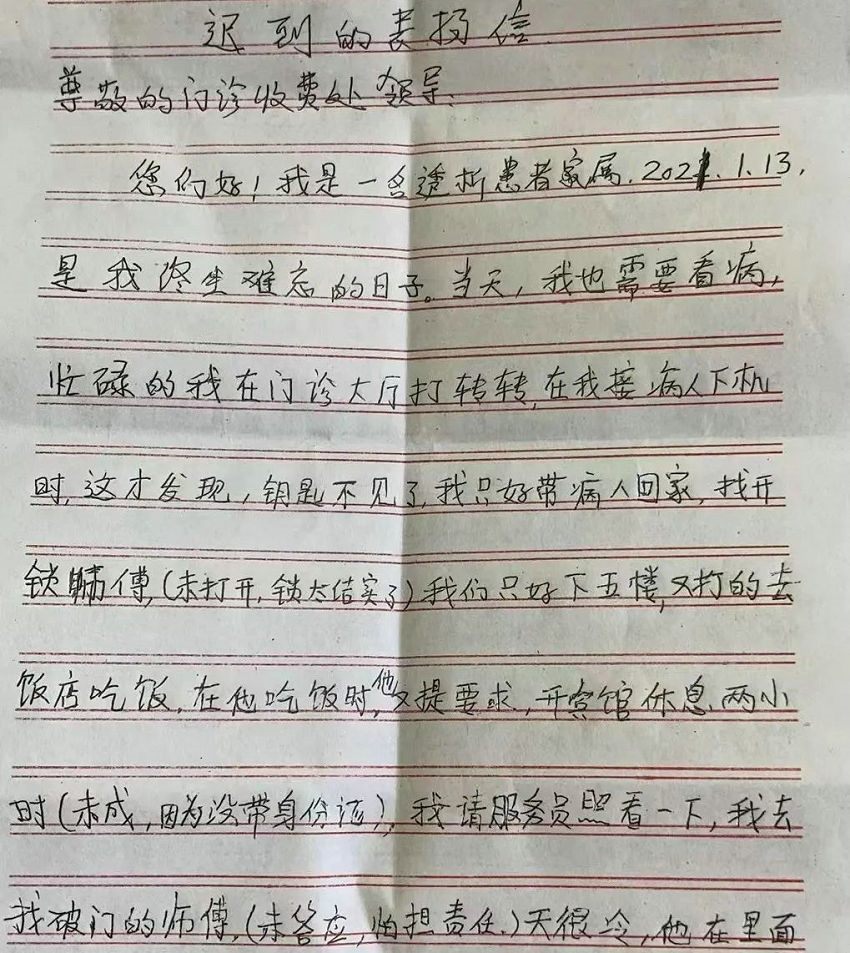 迟到的表扬信
尊敬的门诊收费处领导:
您们好!我是一名透析患者家属.2021.1.13,
是我终生难忘的日子。当天,我也需要看病,
忙碌的我在门诊大厅打转转,在我接病人下机
时,这才发现,钥匙不见了,我只好带病人回家,找开
锁师傅,(未打开,锁太结实了)我们只好下五楼,又打的去
饭店吃饭,在他吃饭时,他又提要求,开宾馆休息两小
时(未成,因为没带身份证),我请服务员照看一下,我去
找破门的师傅,(未答应,怕担责任.)天很冷,他在里面